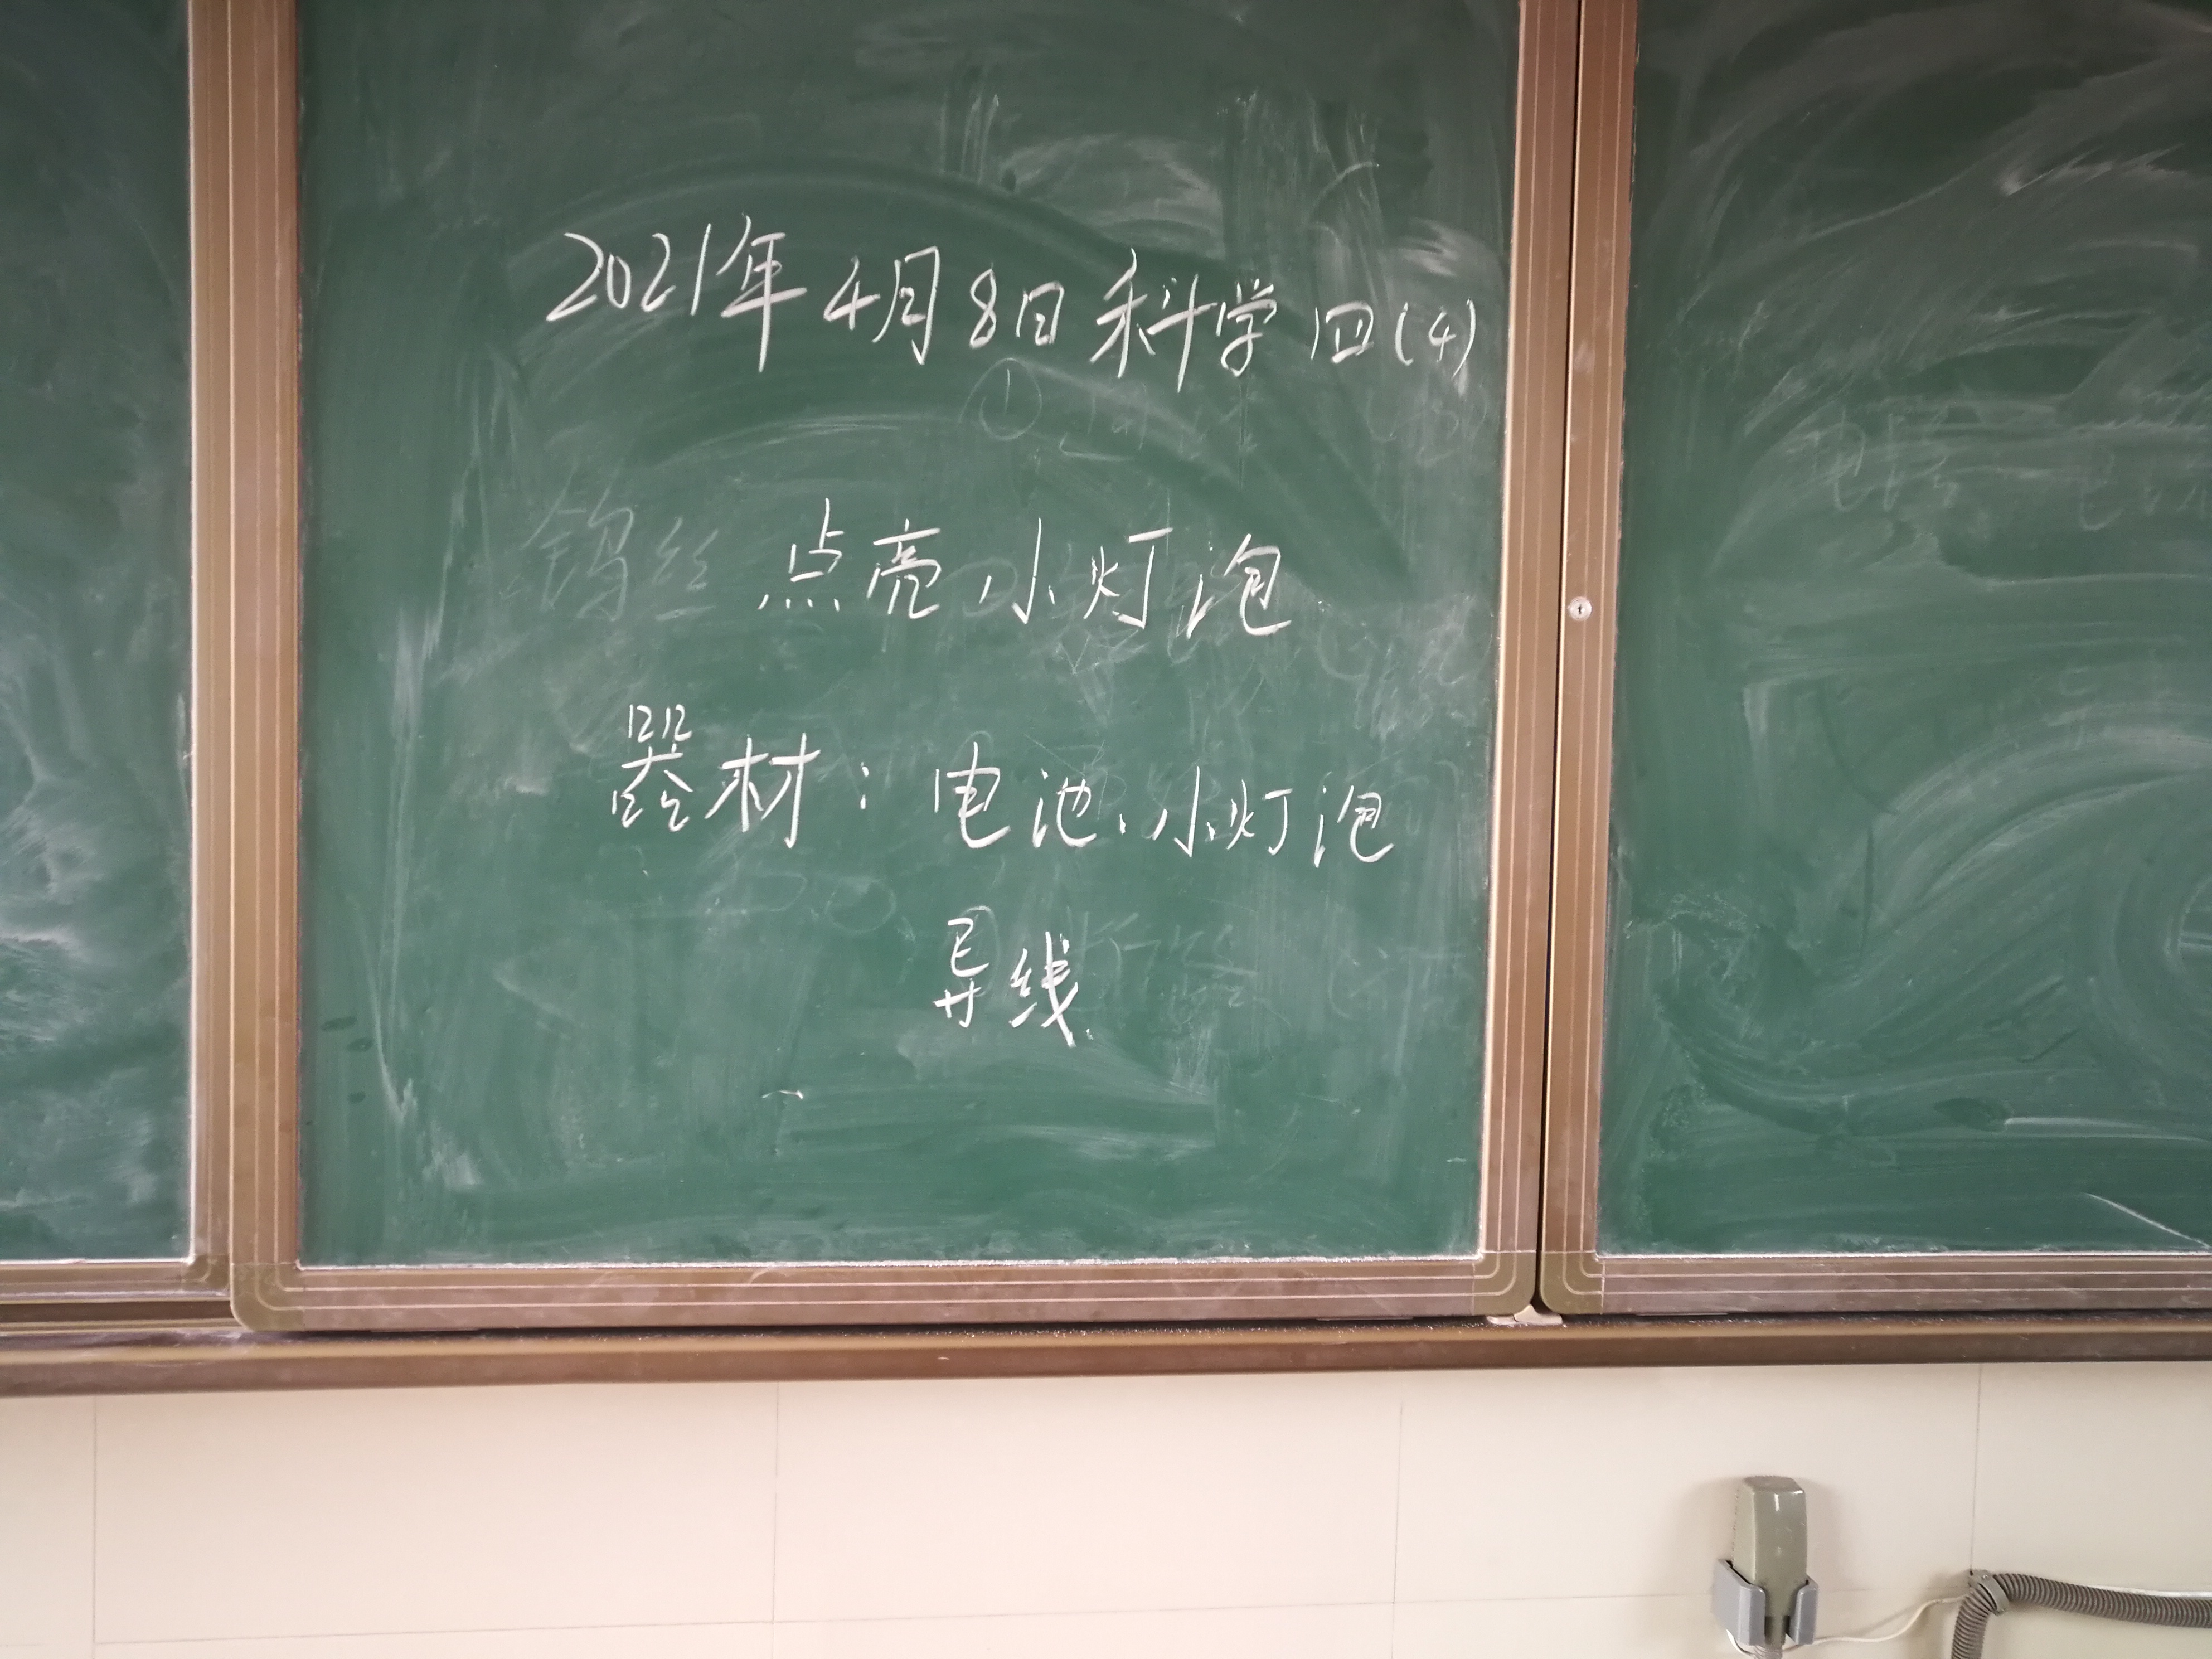 2021年4月8日科学四(4)
钨丝 点亮小灯泡
器材：电池、小灯泡
导线